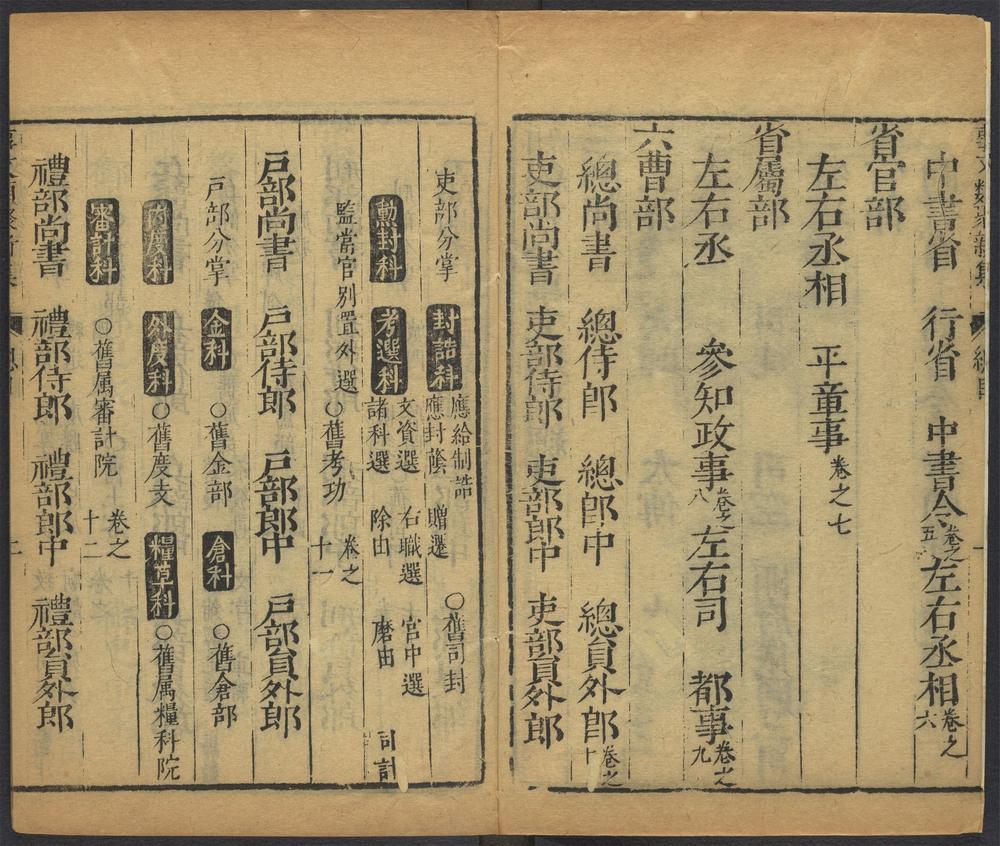 中書省 行省 中書令卷之五 左右丞相卷之六
省官部
左右丞相 平章事卷之七
省屬部
左右丞 參知政事卷之八 左右司 都事卷之九
六曹部
總尚書 總侍郎 總郎中 總員外郎卷之十
吏部尚書 吏部侍郎 吏部郎中 吏部員外郎
吏部分掌 封誥科 應給制誥 應封蔭 贈遷 ○舊司封
勳封科 考選科 文資選 諸科選 右職選 除由 宮中選 磨由 司計
監當官別置外選 ○舊考功 卷之十一
戶部尚書 戶部侍郎 戶部郎中 戶部員外郎
戶部分掌 金科 ○舊金部 倉科 ○舊倉部
內度科 外度科 ○舊度支 糧草科 ○舊屬糧科院
審計科 ○舊屬審計院 卷之十二
禮部尚書 禮部侍郎 禮部郎中 禮部員外郎